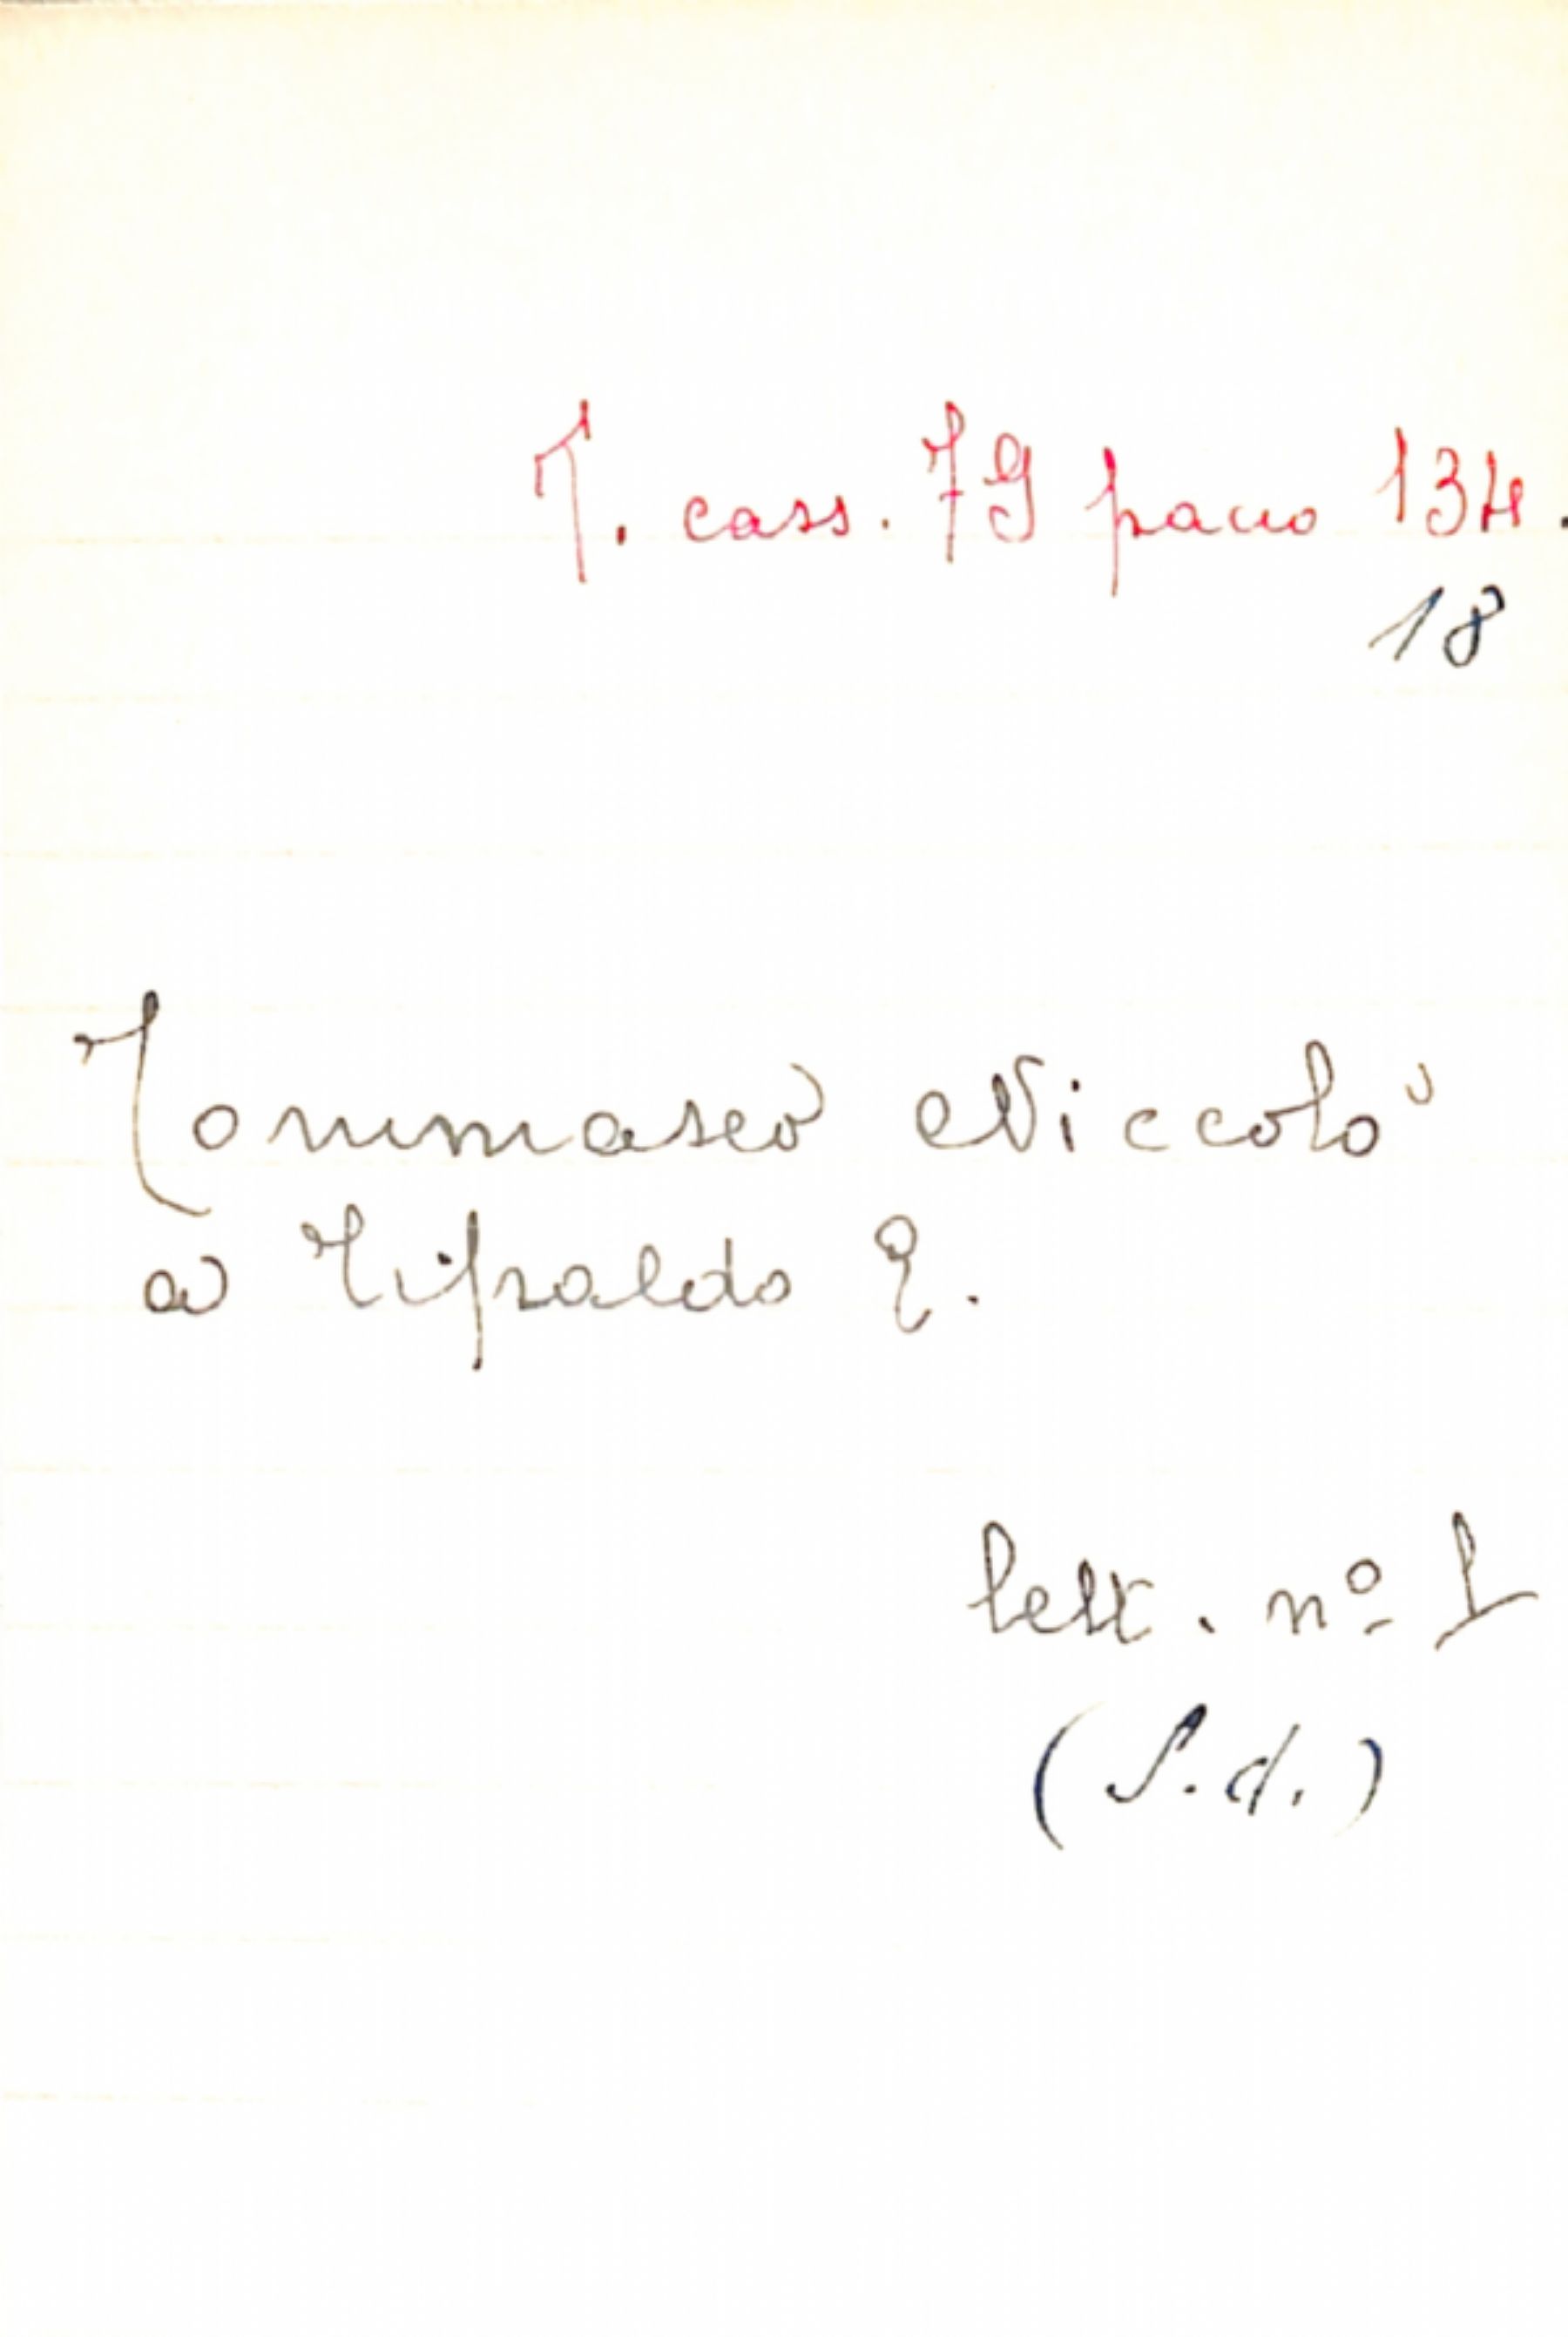 T. cass. 79 pacco 134.
18
Tommaseo Niccolò
a Tipaldo E.
lett. nº 1
(S.d.)